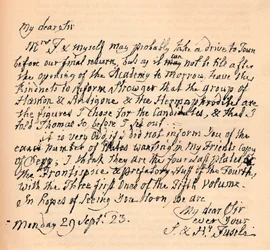 My dear Sir
Mrs F & myself may probably take a drive to Town
before our final return, but as it may not be till after
the opening of the Academy to Morrow, have the
kindness to inform Strowger that the group of
Haemon & Antigone & the Hermaphrodite are
the figures I chose for the Candidates, & that I
told Thomas so before I set out.
it is very odd if I did not inform You of the
exact number of Plates wanting in my Friends Copy
of Sepp; I think they are the four last plates of
the Frontispiece & prefatory stuff of the Fourth,
with the Three first ones of the Fifth volume.
In hopes of seeing You soon, be are
My dear Sir
ever Yours
Hy. Fuseli
Monday 29 Sept. 23.